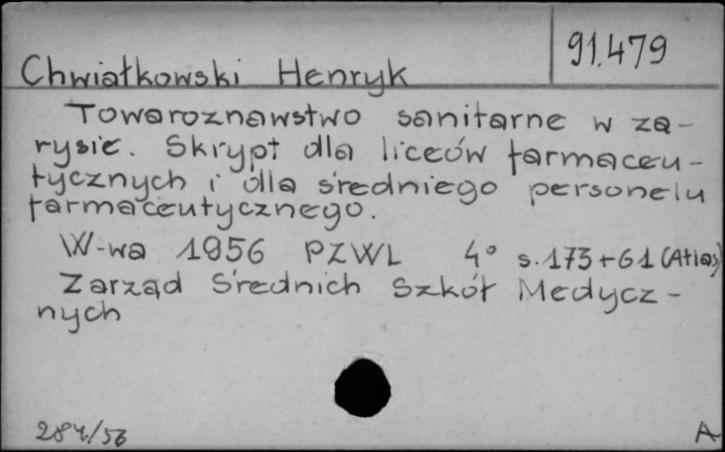 91.479
Chwiałkowski Henryk
Towaroznawstwo sanitarne w za-
rysie. Skrypt dla liceów farmaceu-
tycznych i dla średniego personelu
farmaceutycznego.
W-wa 1956 PZWL 4° s. 173+61 (Atlas)
Zarząd Średnich Szkół Medycz-
nych
284/56
A